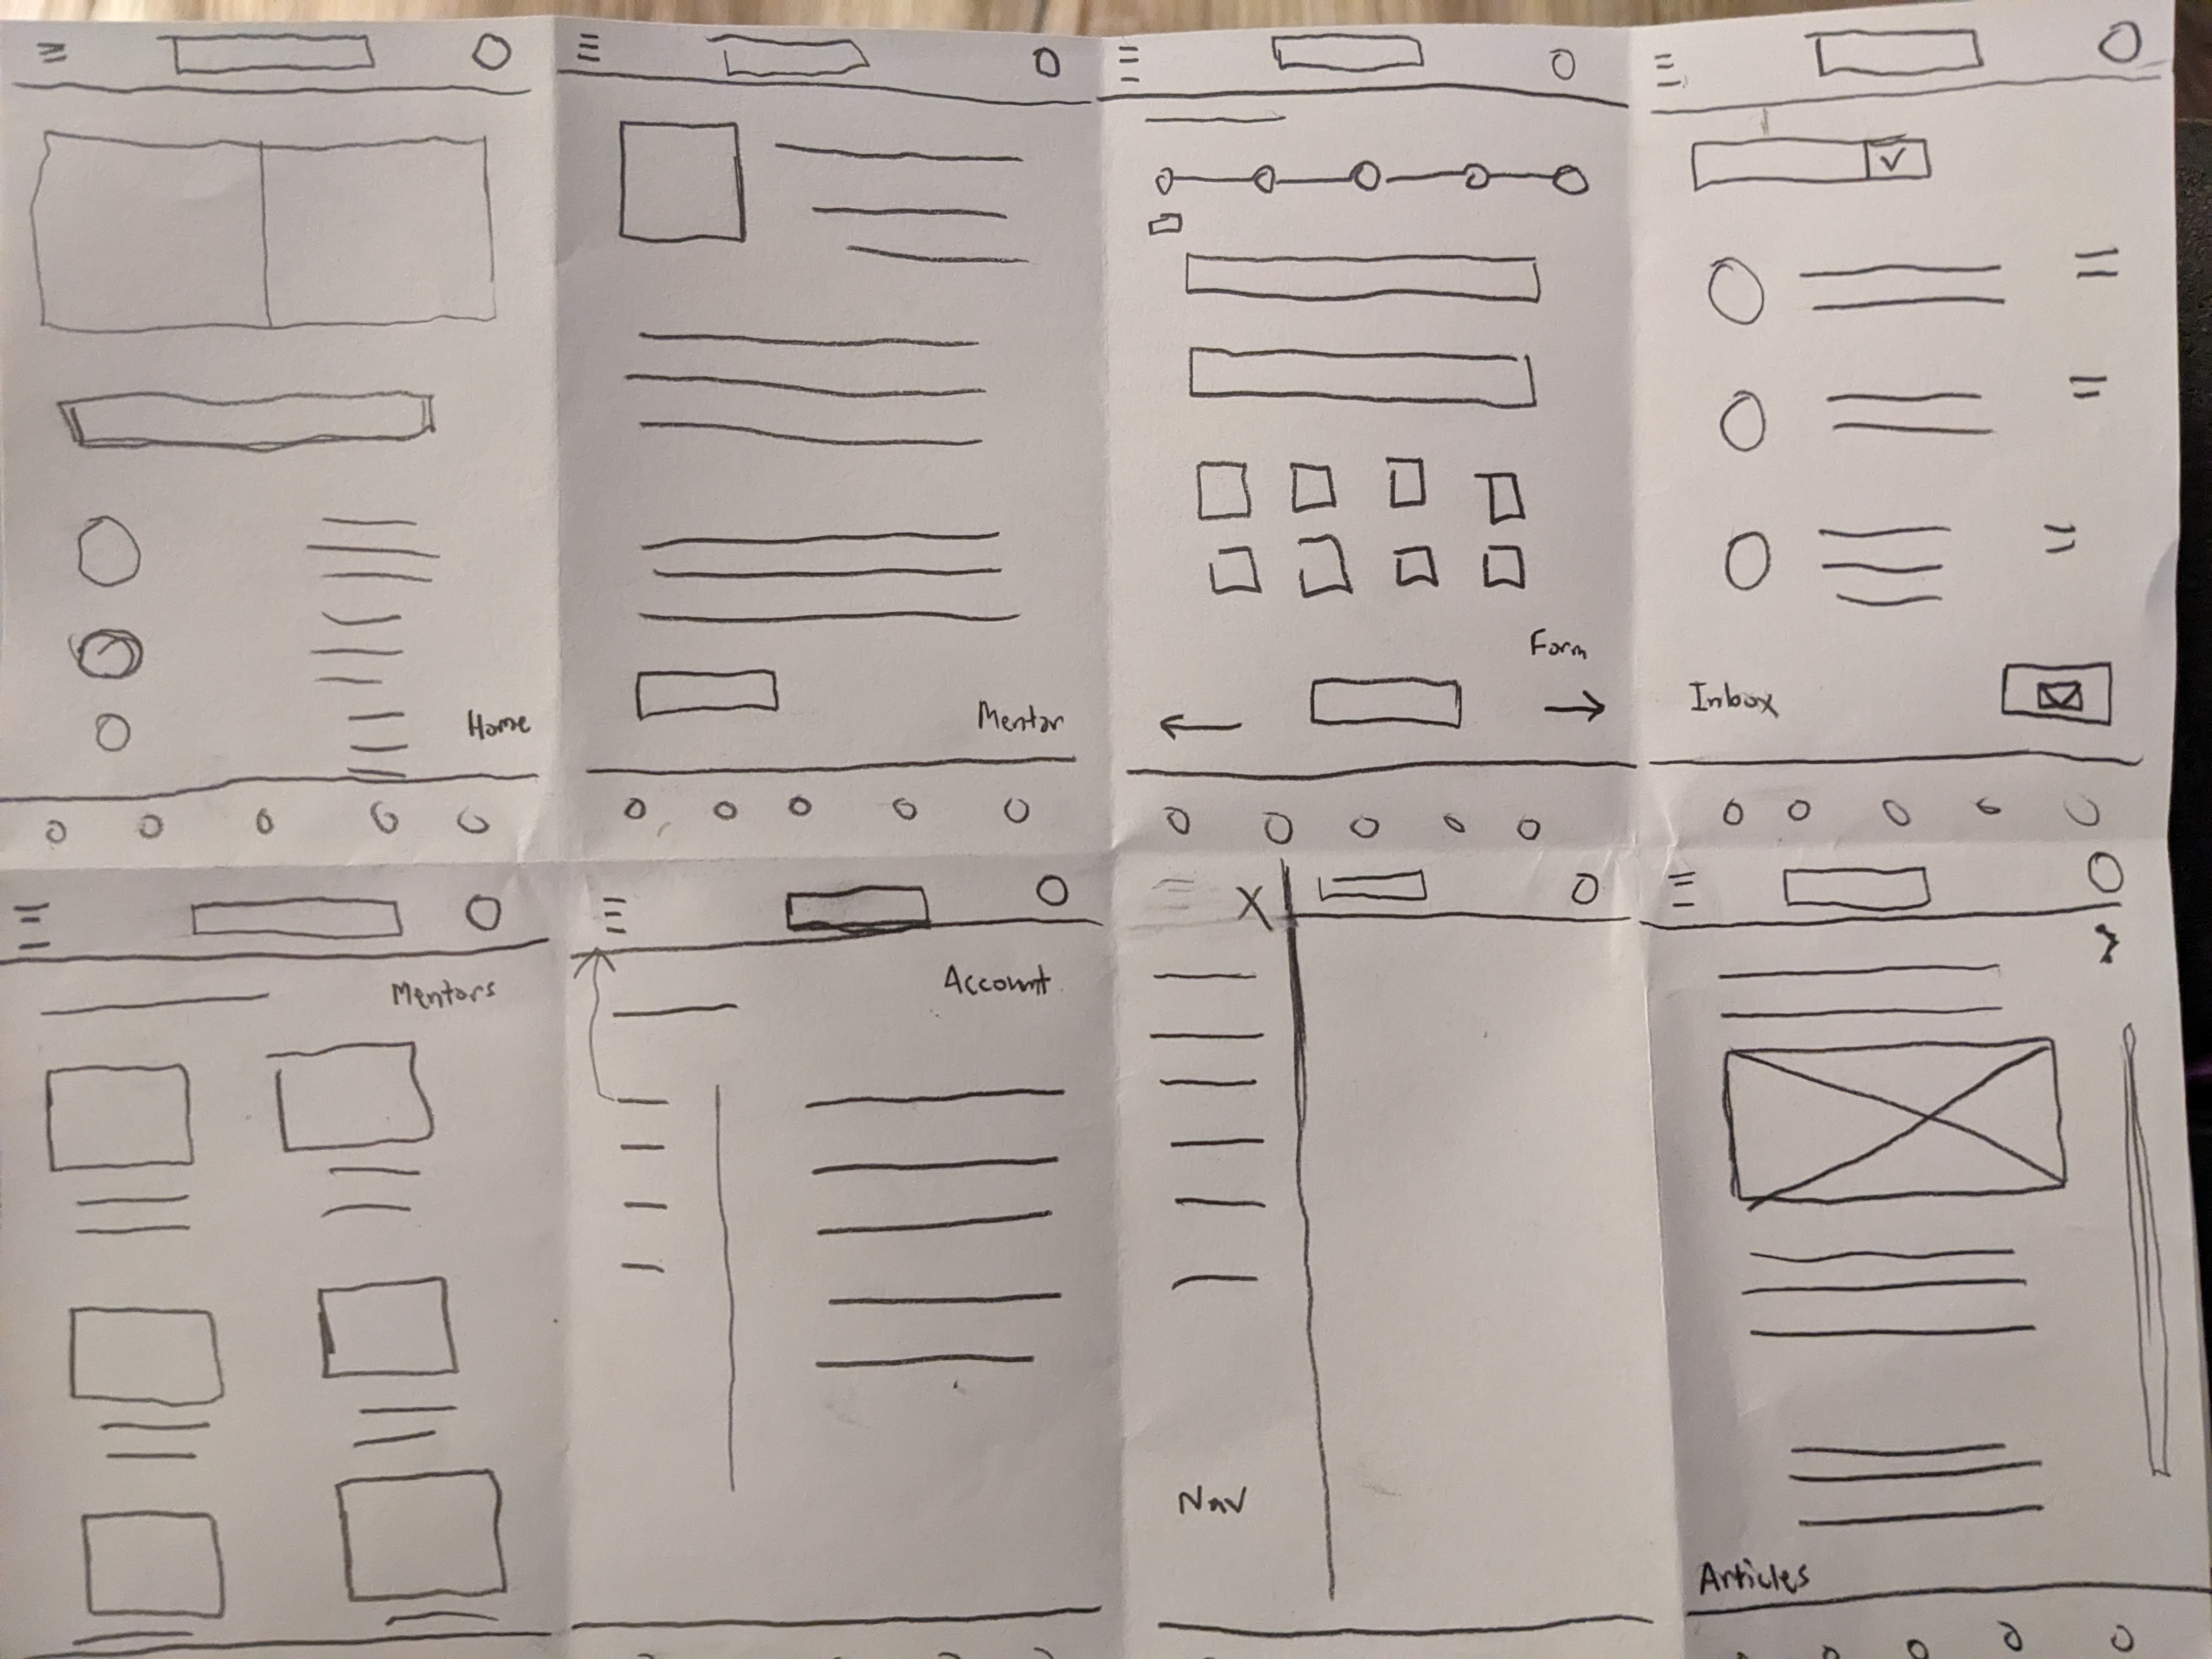 Home
Mentor
Form
Inbox
Mentors
Account
Nav
Articles